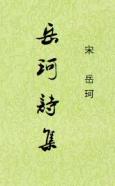 宋 岳珂
岳珂詩集